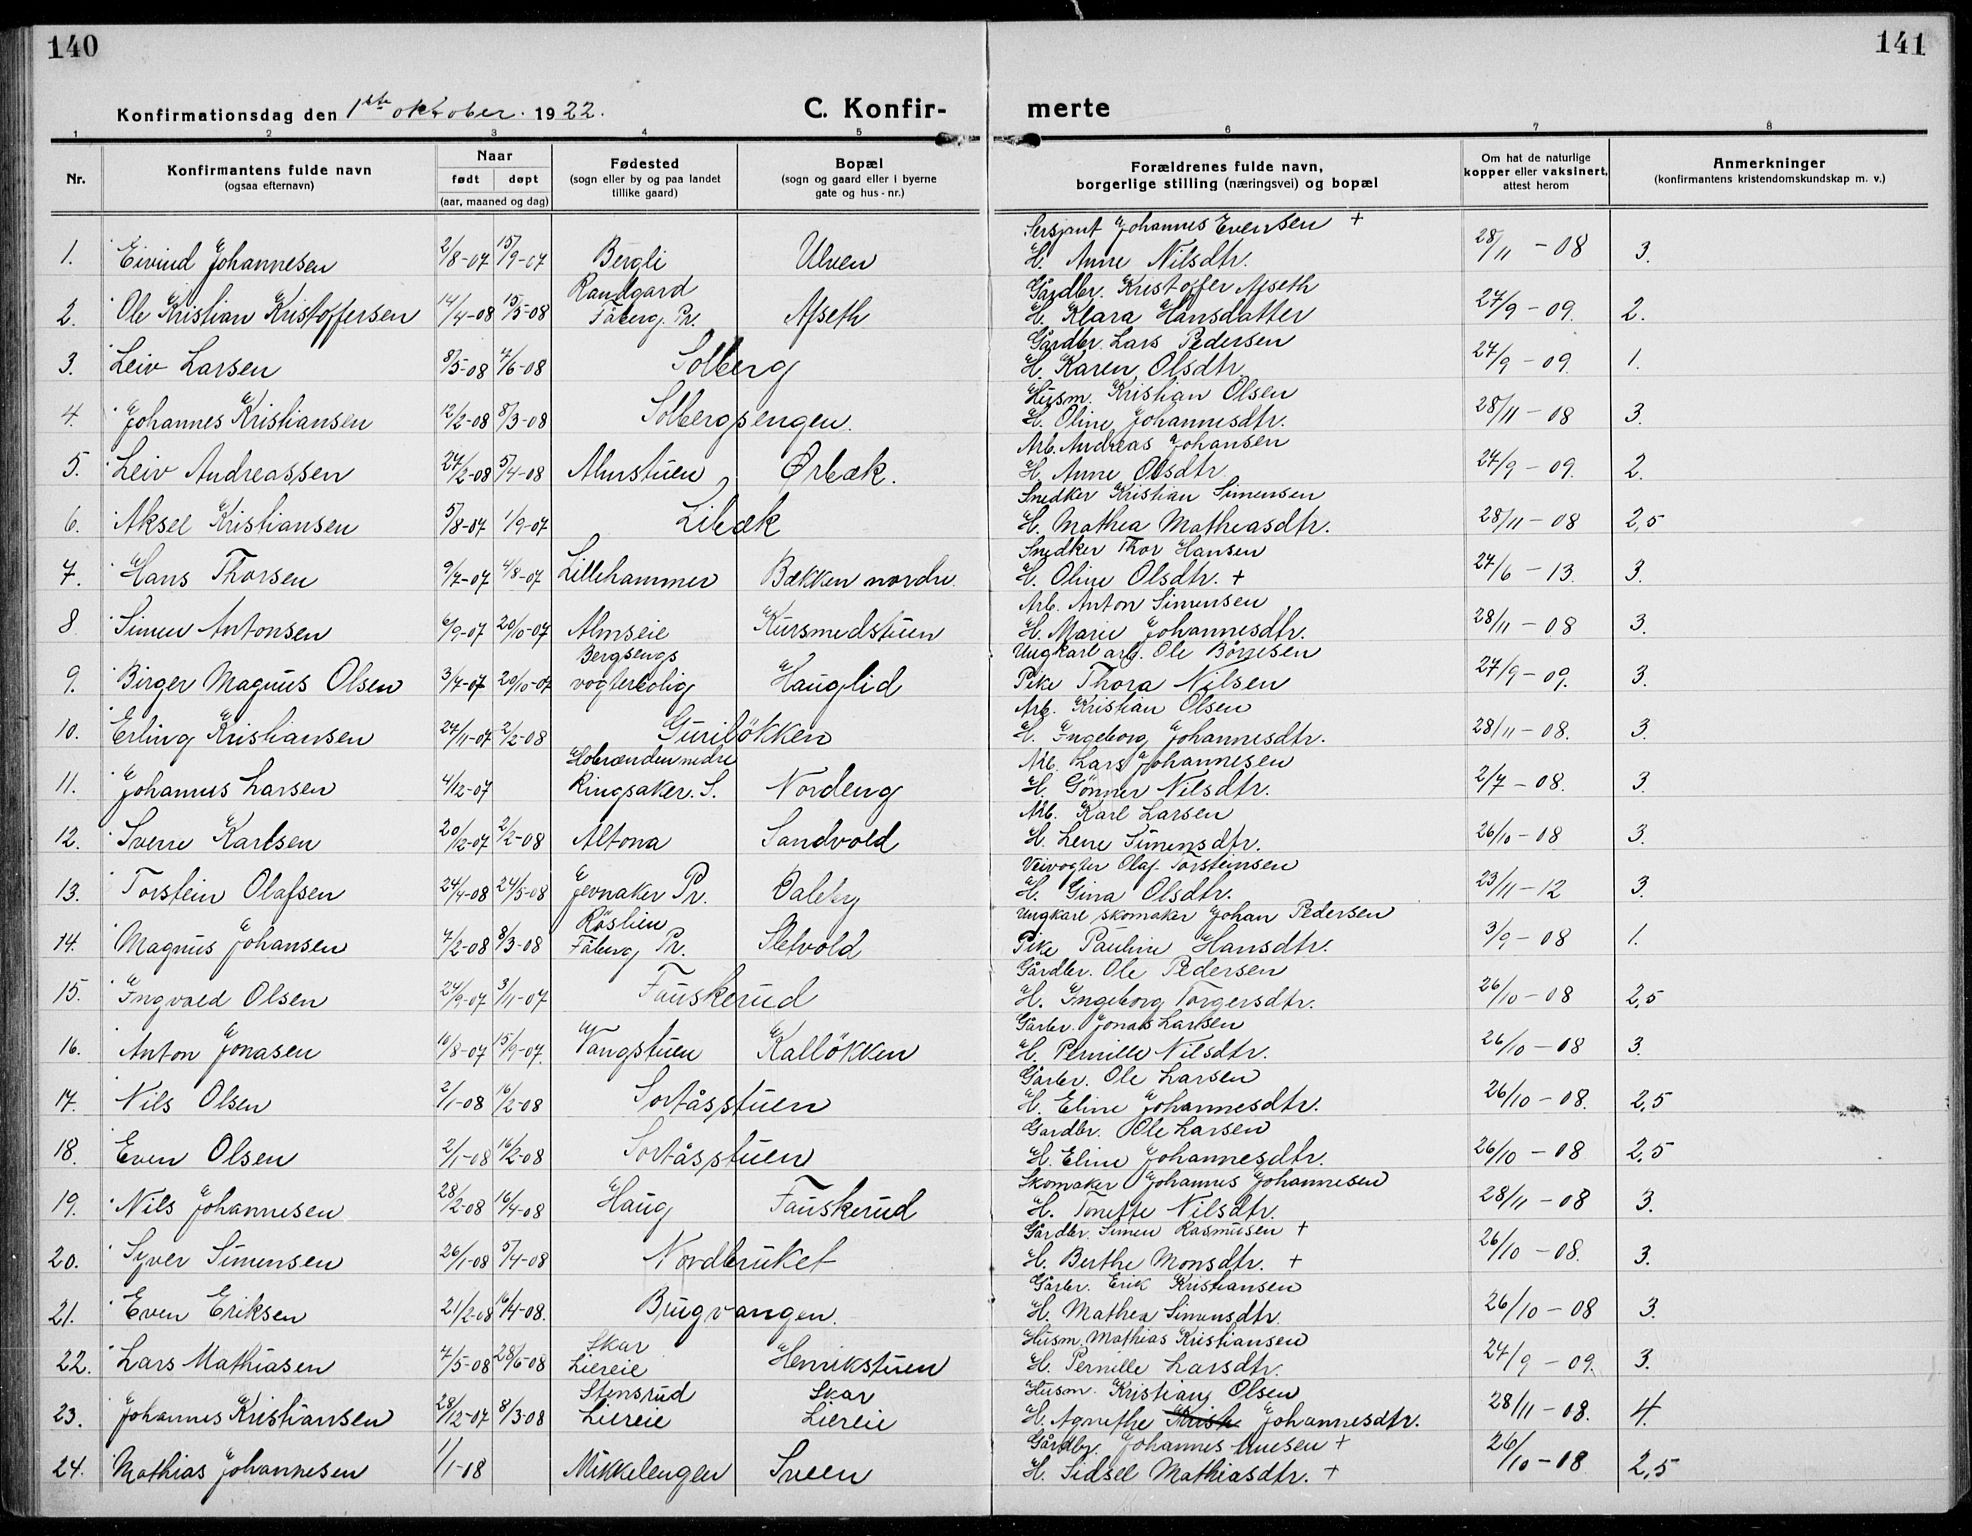 140
141
Konfirmationsdag den 1ste oktober. 1922.
C. Konfirmerte
1 2 3 4 5 6 7 8
Nr.
Konfirmantens fulde navn
(ogsaa efternavn)
Naar
født døpt
(aar, maaned og dag)
Fødested
(sogn eller by og paa landet
tillike gaard)
Bopæl
(sogn og gaard eller i byerne
gate og hus-nr.)
Forældrenes fulde navn,
borgerlige stilling (næringsvei) og bopæl
Om hat de naturlige
kopper eller vaksinert,
attest herom
Anmerkninger
(konfirmantens kristendomskundskap m. v.)
Sersjant Johannes Evensen +
1. Eivind Johannesen 2/8-07 15/9-07 Bergli Ulven H. Anne Nilsdtr. 28/11 - 08 3.
Randgard Gårdbr. Kristoffer Afseth
2. Ole Kristian Kristoffersen 14/4-08 15/5-08 Fåberg. Pr. Afseth H. Klara Hansdatter 27/9 - 09. 2.
Gårdbr. Lars Pedersen
3. Leiv Larsen 8/5-08 7/6-08 Solberg H. Karen Olsdtr. 27/9 - 09. 1.
Husm. Kristian Olsen
4. Johannes Kristiansen 12/2-08 8/3-08 Solbergsengen. H. Oline Johannesdtr. 28/11 - 08 3.
Arb. Andreas Johansen
5. Leiv Andreassen 27/2-08 5/4-08 Almstuen Ørbæk. H. Anne Olsdtr. 27/9 - 09. 2.
Snedker Kristian Simensen
6. Aksel Kristiansen 5/8-07 1/9-07 Libæk H. Mathea Mathiasdtr. 28/11 - 08 2,5
Snedker Thor Hansen
7. Hans Thorsen 9/7-07 4/8-07 Lillehammer Bækken nordre. H. Oline Olsdtr. + 27/6 - 13. 3.
Arb. Anton Simensen
8. Simen Antonsen 6/9-07 20/10-07 Almseie Kursmedstuen H. Marie Johannesdtr. 28/11 - 08 3.
Bergsengs Ungkarl arb. Ole Börresen
9. Birger Magnus Olsen 3/7-07 20/10-07 vogterbolig Hauglid Pike Thora Nilsen 27/9 - 09. 3.
Arb. Kristian Olsen
10. Erling Kristiansen 27/11-07 2/2-08 Gurilökken H. Ingeborg Johannesdtr. 28/11 - 08. 3.
Hobrænden nedre Arb. Lars Johannesen
11. Johannes Larsen 4/12-07 Ringsaker. S. Nordeng H. Gönner Nilsdtr. 2/7 - 08. 3.
Arb. Karl Larsen
12. Sverre Karlsen 20/12-07 2/2-08 Altona Sandvold H. Lene Simensdtr. 26/10 - 08 3.
Veivogter Olaf Torsteinsen
13. Torstein Olafsen 24/4-08 24/5-08 Jevnaker Pr. Daleby H. Gina Olsdtr. 23/11 - 12 3.
Röslien Ungkarl skomaker Johan Pedersen
14. Magnus Johansen 7/2-08 8/3-08 Fåberg Pr. Sletvold Pike Pauline Hansdtr. 3/9 - 08 1.
Gårdbr. Ole Pedersen
15. Ingvald Olsen 24/9-07 3/11-07 Fauskerud H. Ingeborg Torgersdtr. 26/10 - 08 2,5
Gårbr. Jonas Larsen
16. Anton Jonasen 16/8-07 15/9-07. Vangstuen Kallökken H. Pernille Nilsdtr. 26/10 - 08 3.
Gårbr. Ole Larsen
17. Nils Olsen 2/1-08 16/2-08 Sortåsstuen H. Eline Johannesdtr. 26/10 - 08. 2,5
Gardbr. Ole Larsen
18. Even Olsen 2/1-08 16/2-08 Sortåsstuen H. Eline Johannesdtr. 26/10 - 08 2,5
Skomaker Johannes Johannesen
19. Nils Johannesen 28/2-08 16/4-08 Haug Fauskerud H. Tonette Nilsdtr. 28/11 - 08 3.
Gårdbr. Simen Rasmusen +
20. Syver Simensen 26/1-08 5/4-08 Nordbruket H. Berthe Monsdtr. + 26/10 - 08. 3.
Gårbr. Erik Kristiansen
21. Even Eriksen 21/2-08 16/4-08. Brugvangen. H. Mathea Simensdtr. 26/10 - 08 3.
Skar Husm. Mathias Kristiansen
22. Lars Mathiasen 7/5-08 28/6-08 Liereie Henrikstuen H. Pernille Larsdtr. 27/9 - 09. 3.
Stensrud Skar Husm. Kristian Olsen
23. Johannes Kristiansen 28/12-07 8/3-08 Liereie Liereie H. Agnethe Johannesdtr. 28/11 - 08. 4.
Gårdbr. Johannes +
24. Mathias Johannesen 1/1-08 Mikkelengen Sveen H. Sidsel Mathiasdtr. + 26/10 - 08 2,5